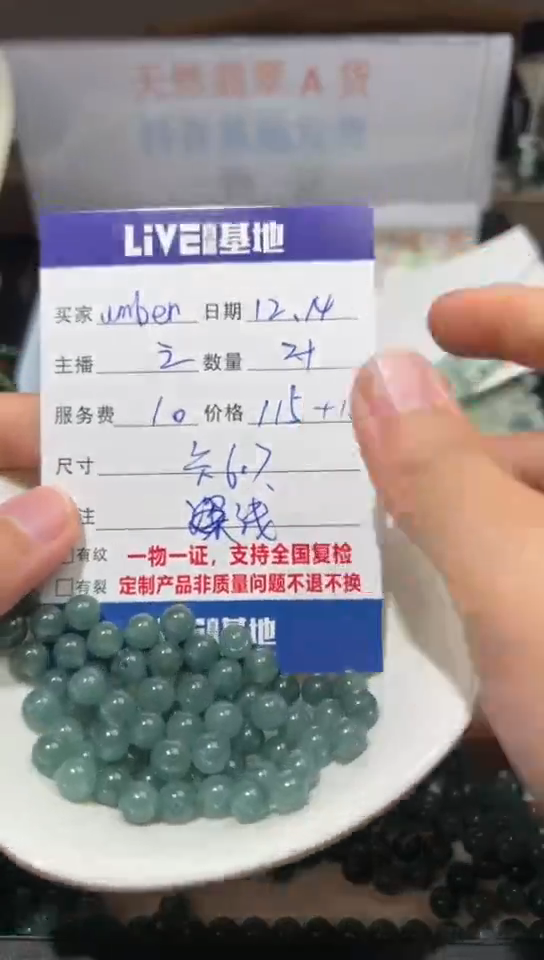 天然翡翠 A 货
LIVE基地
买家 umben 日期 12.14
主播 数量 21
服务费 10 价格 115+1
尺寸 6.7
注
有纹 一物一证，支持全国复检
有裂 定制产品非质量问题不退不换
基地